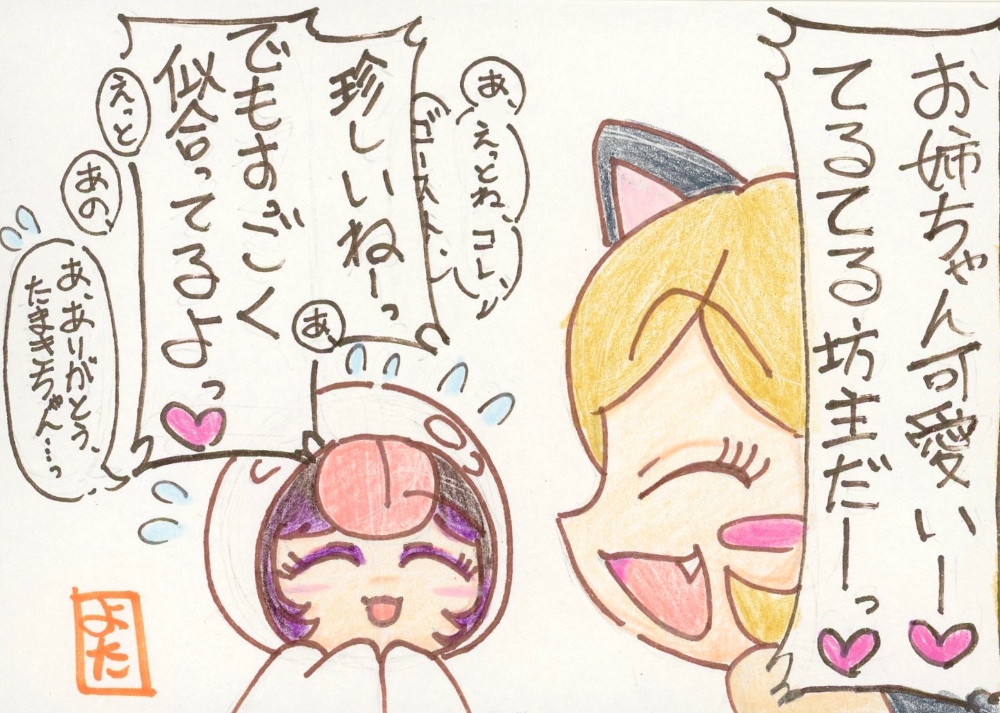 お姉ちゃん可愛いー
てるてる坊主だーっ
あ、
えっとね、コレ、
ゴースト、
珍しいねーっ
でもすっごく
似合ってるよっ
あ、
えっと
あの、
あ、ありがとう、
たまきちゃん…っ
よた